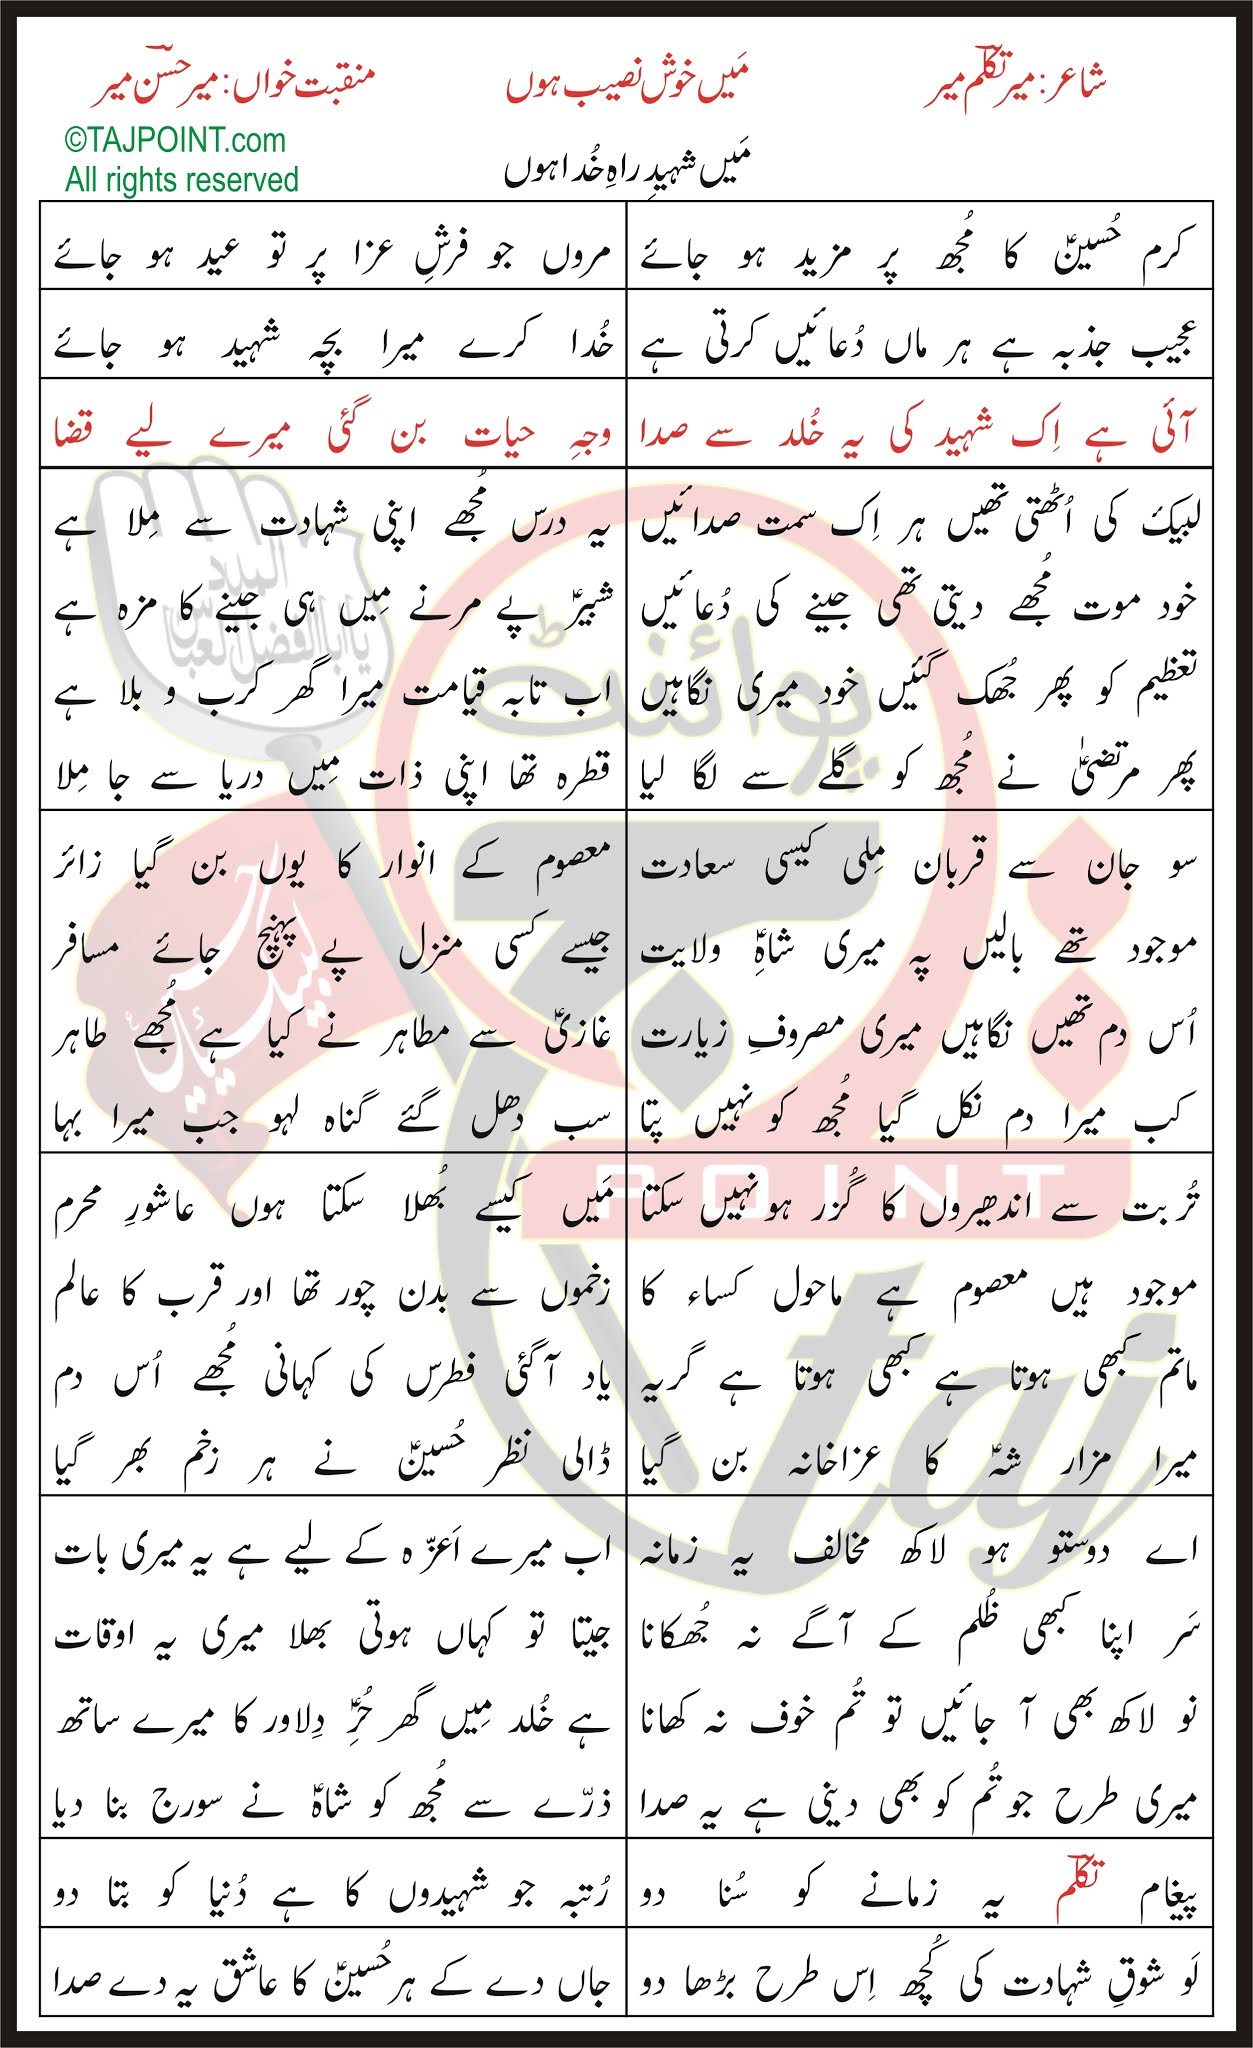 شاعر: میر تکلمؔ میر
مَیں خوش نصیب ہوں
منقبت خواں: میر حسنؔ میر
©TAJPOINT.com
All rights reserved
مَیں شہیدِ راہِ خُدا ہوں
کرم حُسینؑ کا مُجھ پر مزید ہو جائے
مروں جو فرشِ عزا پر تو عید ہو جائے
عجیب جذبہ ہے ہر ماں دُعائیں کرتی ہے
خُدا کرے میرا بچہ شہید ہو جائے
آئی ہے اِک شہید کی یہ خُلد سے صدا
وجہِ حیات بن گئی میرے لیے قضا
لبیک کی اُٹھتی تھیں ہر اِک سمت صدائیں
خود موت مُجھے دیتی تھی جینے کی دُعائیں
تعظیم کو پھر جُھک گئیں خود میری نگاہیں
پھر مرتضیٰؑ نے مُجھ کو گلے سے لگا لیا
یہ درس مُجھے اپنی شہادت سے مِلا ہے
شبیرؑ پے مرنے مِیں ہی جینے کا مزہ ہے
اب تابہ قیامت میرا گھر کرب و بلا ہے
قطرہ تھا اپنی ذات مِیں دریا سے جا مِلا
سو جان سے قربان مِلی کیسی سعادت
موجود تھے بالیں پہ میری شاہِؑ ولایت
اُس دم تھیں نگاہیں میری مصروفِ زیارت
کب میرا دم نکل گیا مُجھ کو نہیں پتا
معصوم کے انوار کا یوں بن گیا زائر
جیسے کسی منزل پے پہنچ جائے مسافر
غازیؑ سے مطاہر نے کیا ہے مُجھے طاہر
سب دھل گئے گناہ لہو جب میرا بہا
تُربت سے اندھیروں کا گُزر ہو نہیں سکتا
موجود ہیں معصوم ہے ماحول کساء کا
ماتم کبھی ہوتا ہے کبھی ہوتا ہے گریہ
میرا مزار شہؑ کا عزاخانہ بن گیا
مَیں کیسے بُھلا سکتا ہوں عاشورِ محرم
زخموں سے بدن چور تھا اور قرب کا عالم
یاد آگئی فطرس کی کہانی مُجھے اُس دم
ڈالی نظر حُسینؑ نے ہر زخم بھر گیا
اے دوستو ہو لاکھ مخالف یہ زمانہ
سَر اپنا کبھی ظُلم کے آگے نہ جُھکانا
نو لاکھ بھی آ جائیں تو تُم خوف نہ کھانا
میری طرح جو تُم کو بھی دینی ہے یہ صدا
اب میرے اَعزّہ کے لیے ہے یہ میری بات
جیتا تو کہاں ہوتی بھلا میری یہ اوقات
ہے خُلد مِیں گھر حُرِؑ دِلاور کا میرے ساتھ
ذرّے سے مُجھ کو شاہؑ نے سورج بنا دیا
پیغام تکلمؔ یہ زمانے کو سُنا دو
رُتبہ جو شہیدوں کا ہے دُنیا کو بتا دو
لَو شوقِ شہادت کی کُچھ اِس طرح بڑھا دو
جاں دے کے ہر حُسینؑ کا عاشق یہ دے صدا
یا ابالفضل العباس
پوائنٹ
POINT
taj